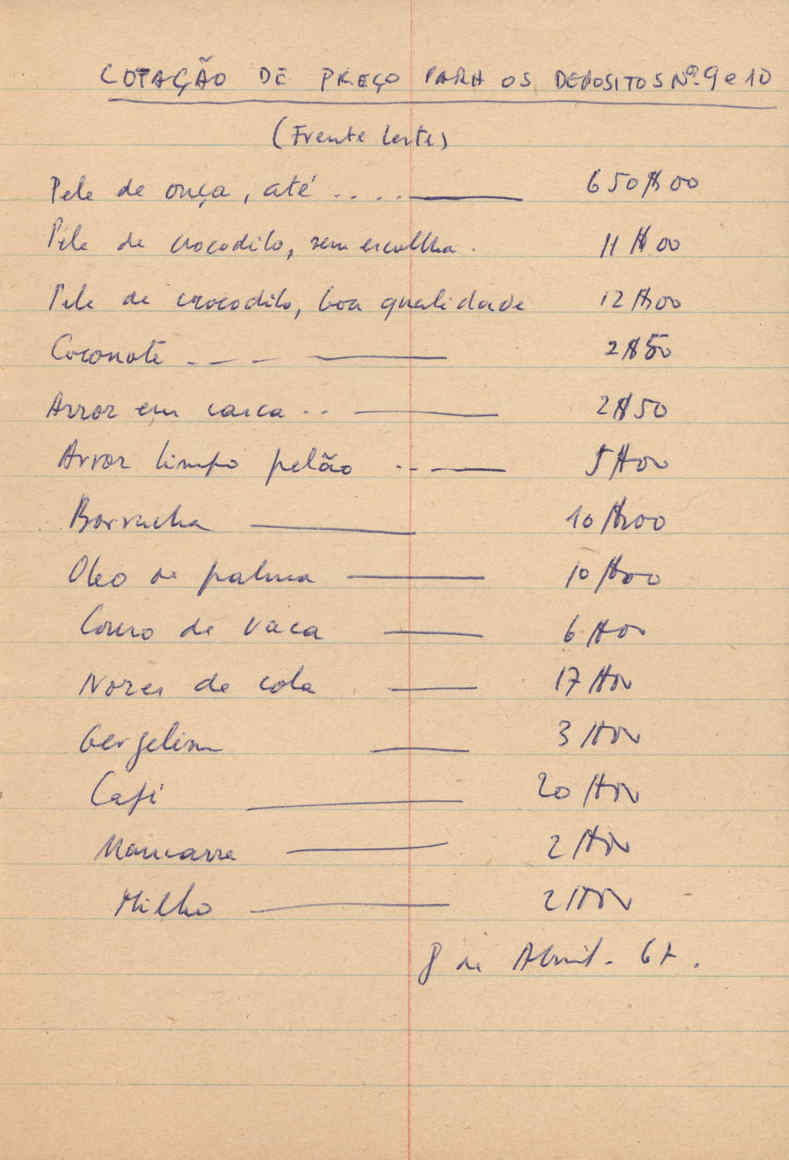 COTAÇÃO DE PREÇO PARA OS DEPOSITOS Nº. 9 e 10
(Frente Leste)
Pele de onça, até .... ——— 650$00
Pele de crocodilo, sem escolha. 11$00
Pele de crocodilo, boa qualidade 12$00
Coconote ——— 2$50
Arroz em casca .. ——— 2$50
Arroz limpo pelão .. ——— 5$00
Borracha ——— 10$00
Oleo de palma ——— 10$00
Couro de vaca ——— 6$00
Nozes de cola ——— 17$00
Gergelim ——— 3$00
Café ——— 20$00
Mancarra ——— 2$00
Milho ——— 2$00
8 de Abril - 67.